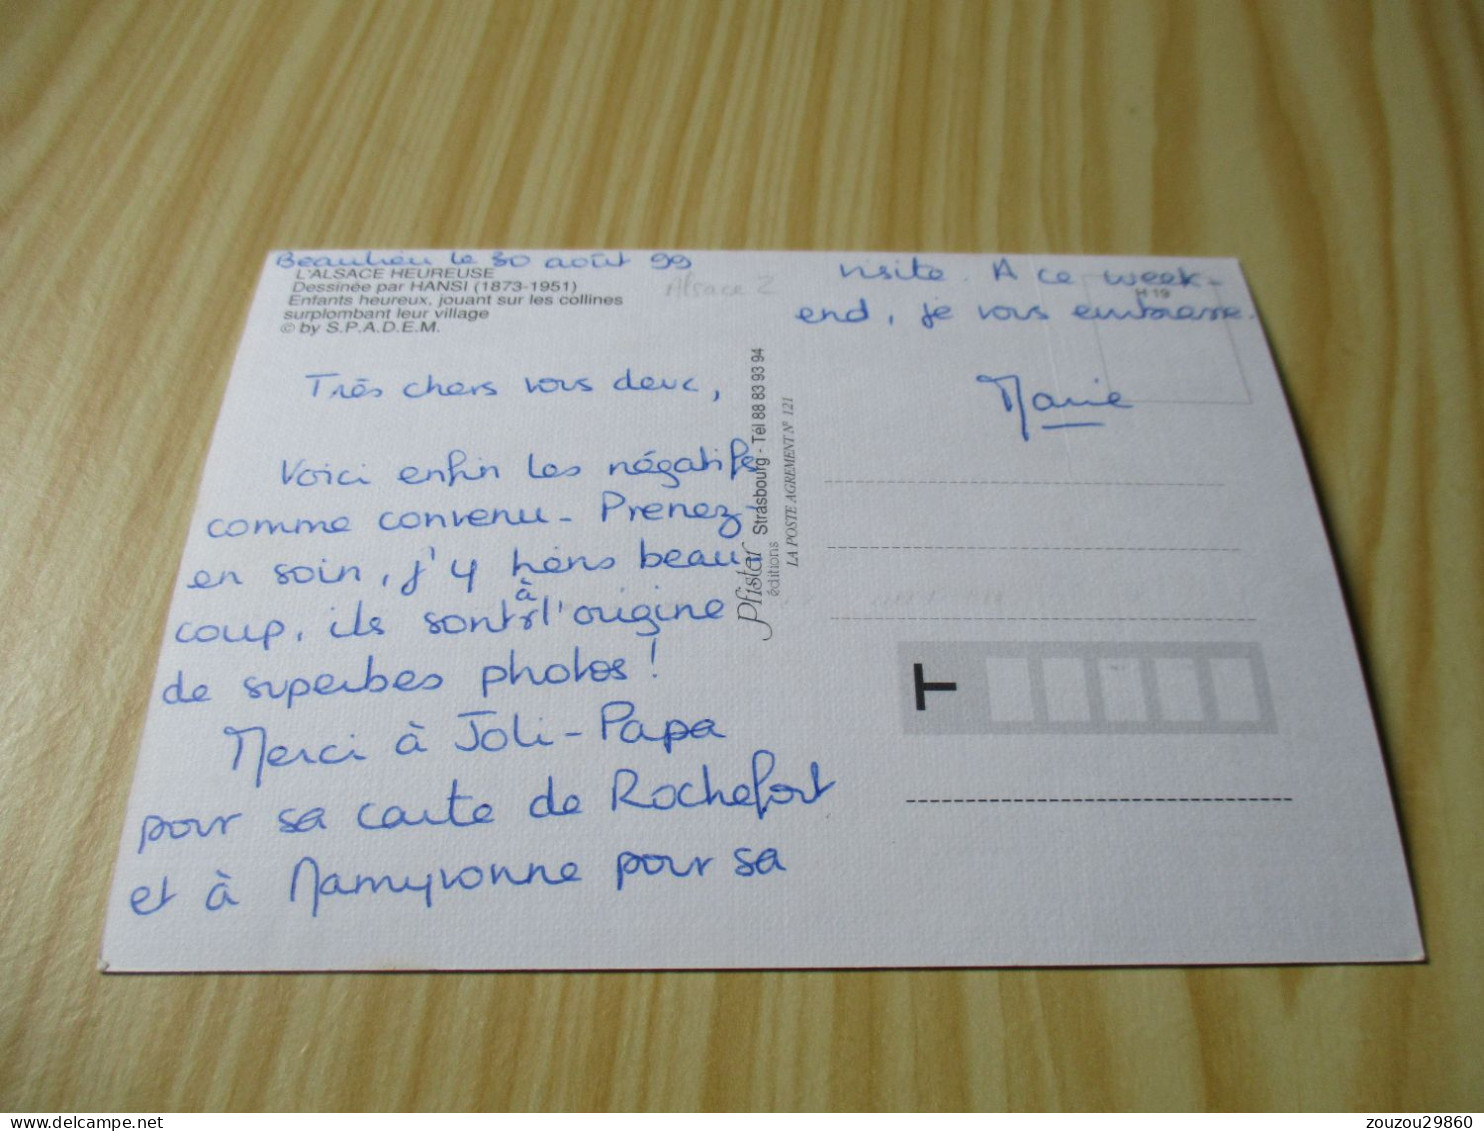 Beaulieu le 30 août 99
L'ALSACE HEUREUSE
Dessinée par HANSI (1873-1951)
Enfants heureux, jouant sur les collines
surplombant leur village
© by S.P.A.D.E.M.
Alsace 2
Très chers vous deux,
Voici enfin les négatifs
comme convenu - Prenez-
en soin, j'y tiens beau-
coup, ils sont à l'origine
de superbes photos !
Merci à Joli-Papa
pour sa carte de Rochefort
et à Mamyvonne pour sa
visite. A ce week-
end, je vous embrasse.
Marie
H 19
Pfister
éditions
Strasbourg - Tél 88 83 93 94
LA POSTE AGREMENT N° 121
T
delcampe.net
zouzou29860